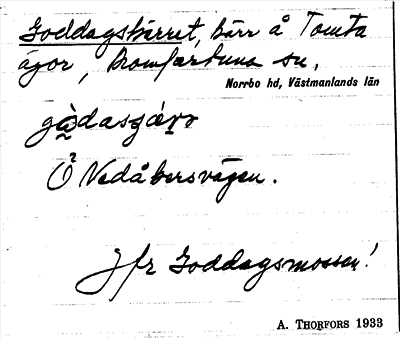 Goddagskärret, kärr å Tomta
ägor, Romfartuna sn,
Norrbo hd, Västmanlands län
Ö Vedåkersvägen.
Jfr Goddagsmossen!
A. THORFORS 1933